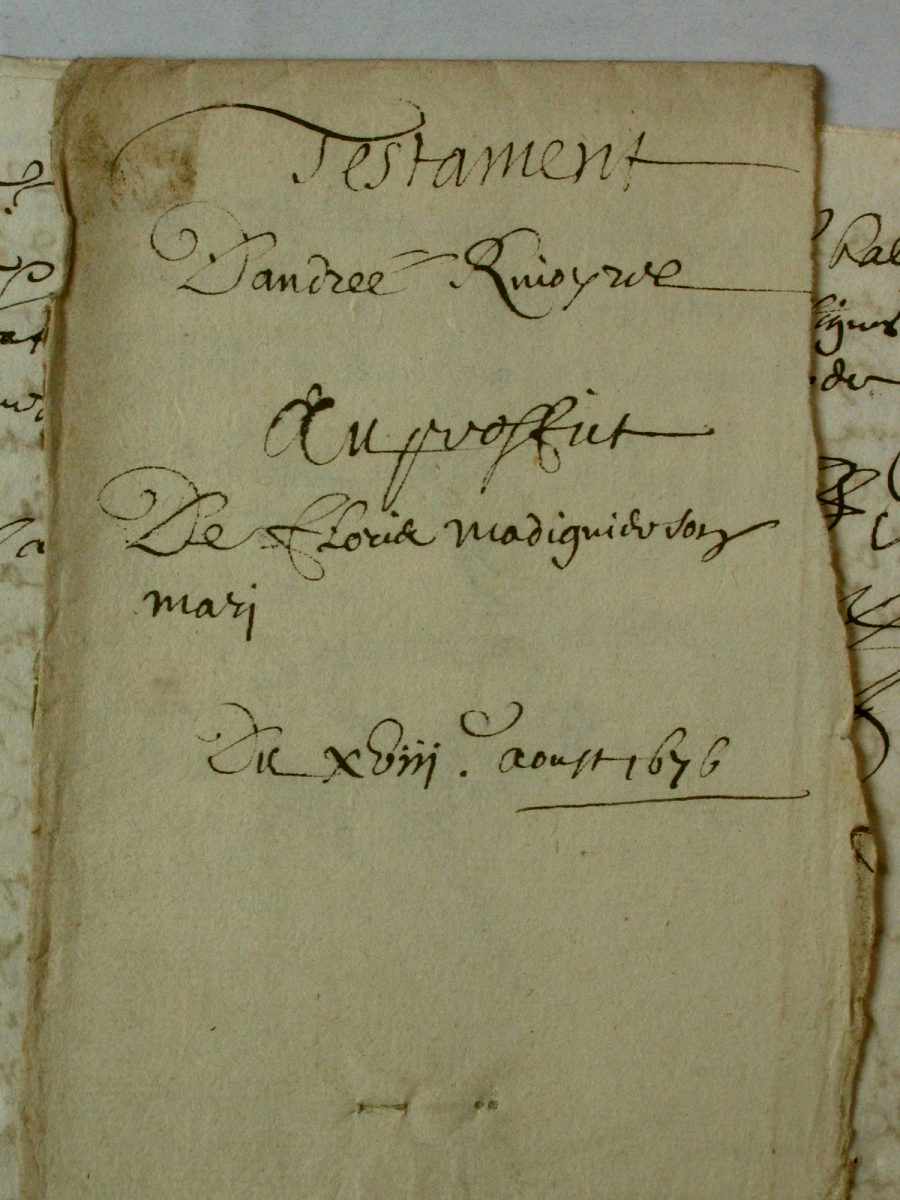 Testament
Dandreé Rivoyre
Au proffict
De fflorid Madignier son
mari
Du xviij.e aoust 1676
de